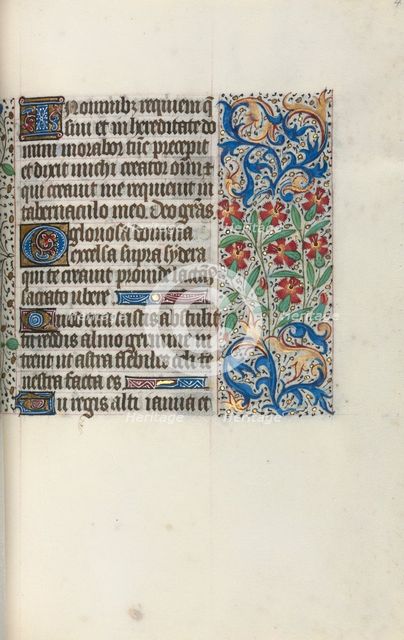 In omnibz requiem q̄
siui et in hereditate do
mini morabor tūc precepit
et dixit michi creator oīm et
qui creauit me requieuit in
tabernaculo meo. Deo grās
O gloriosa domina
excelsa supra sydera
qui te creauit prouide lactasti
sacrato ubere
Quod eua tristis abstulit
tu reddis almo germine in
trent ut astra flebiles celi fe
nestra facta es
Tu regis alti ianua et
Heritage
Heritage
Heritage
Heritage